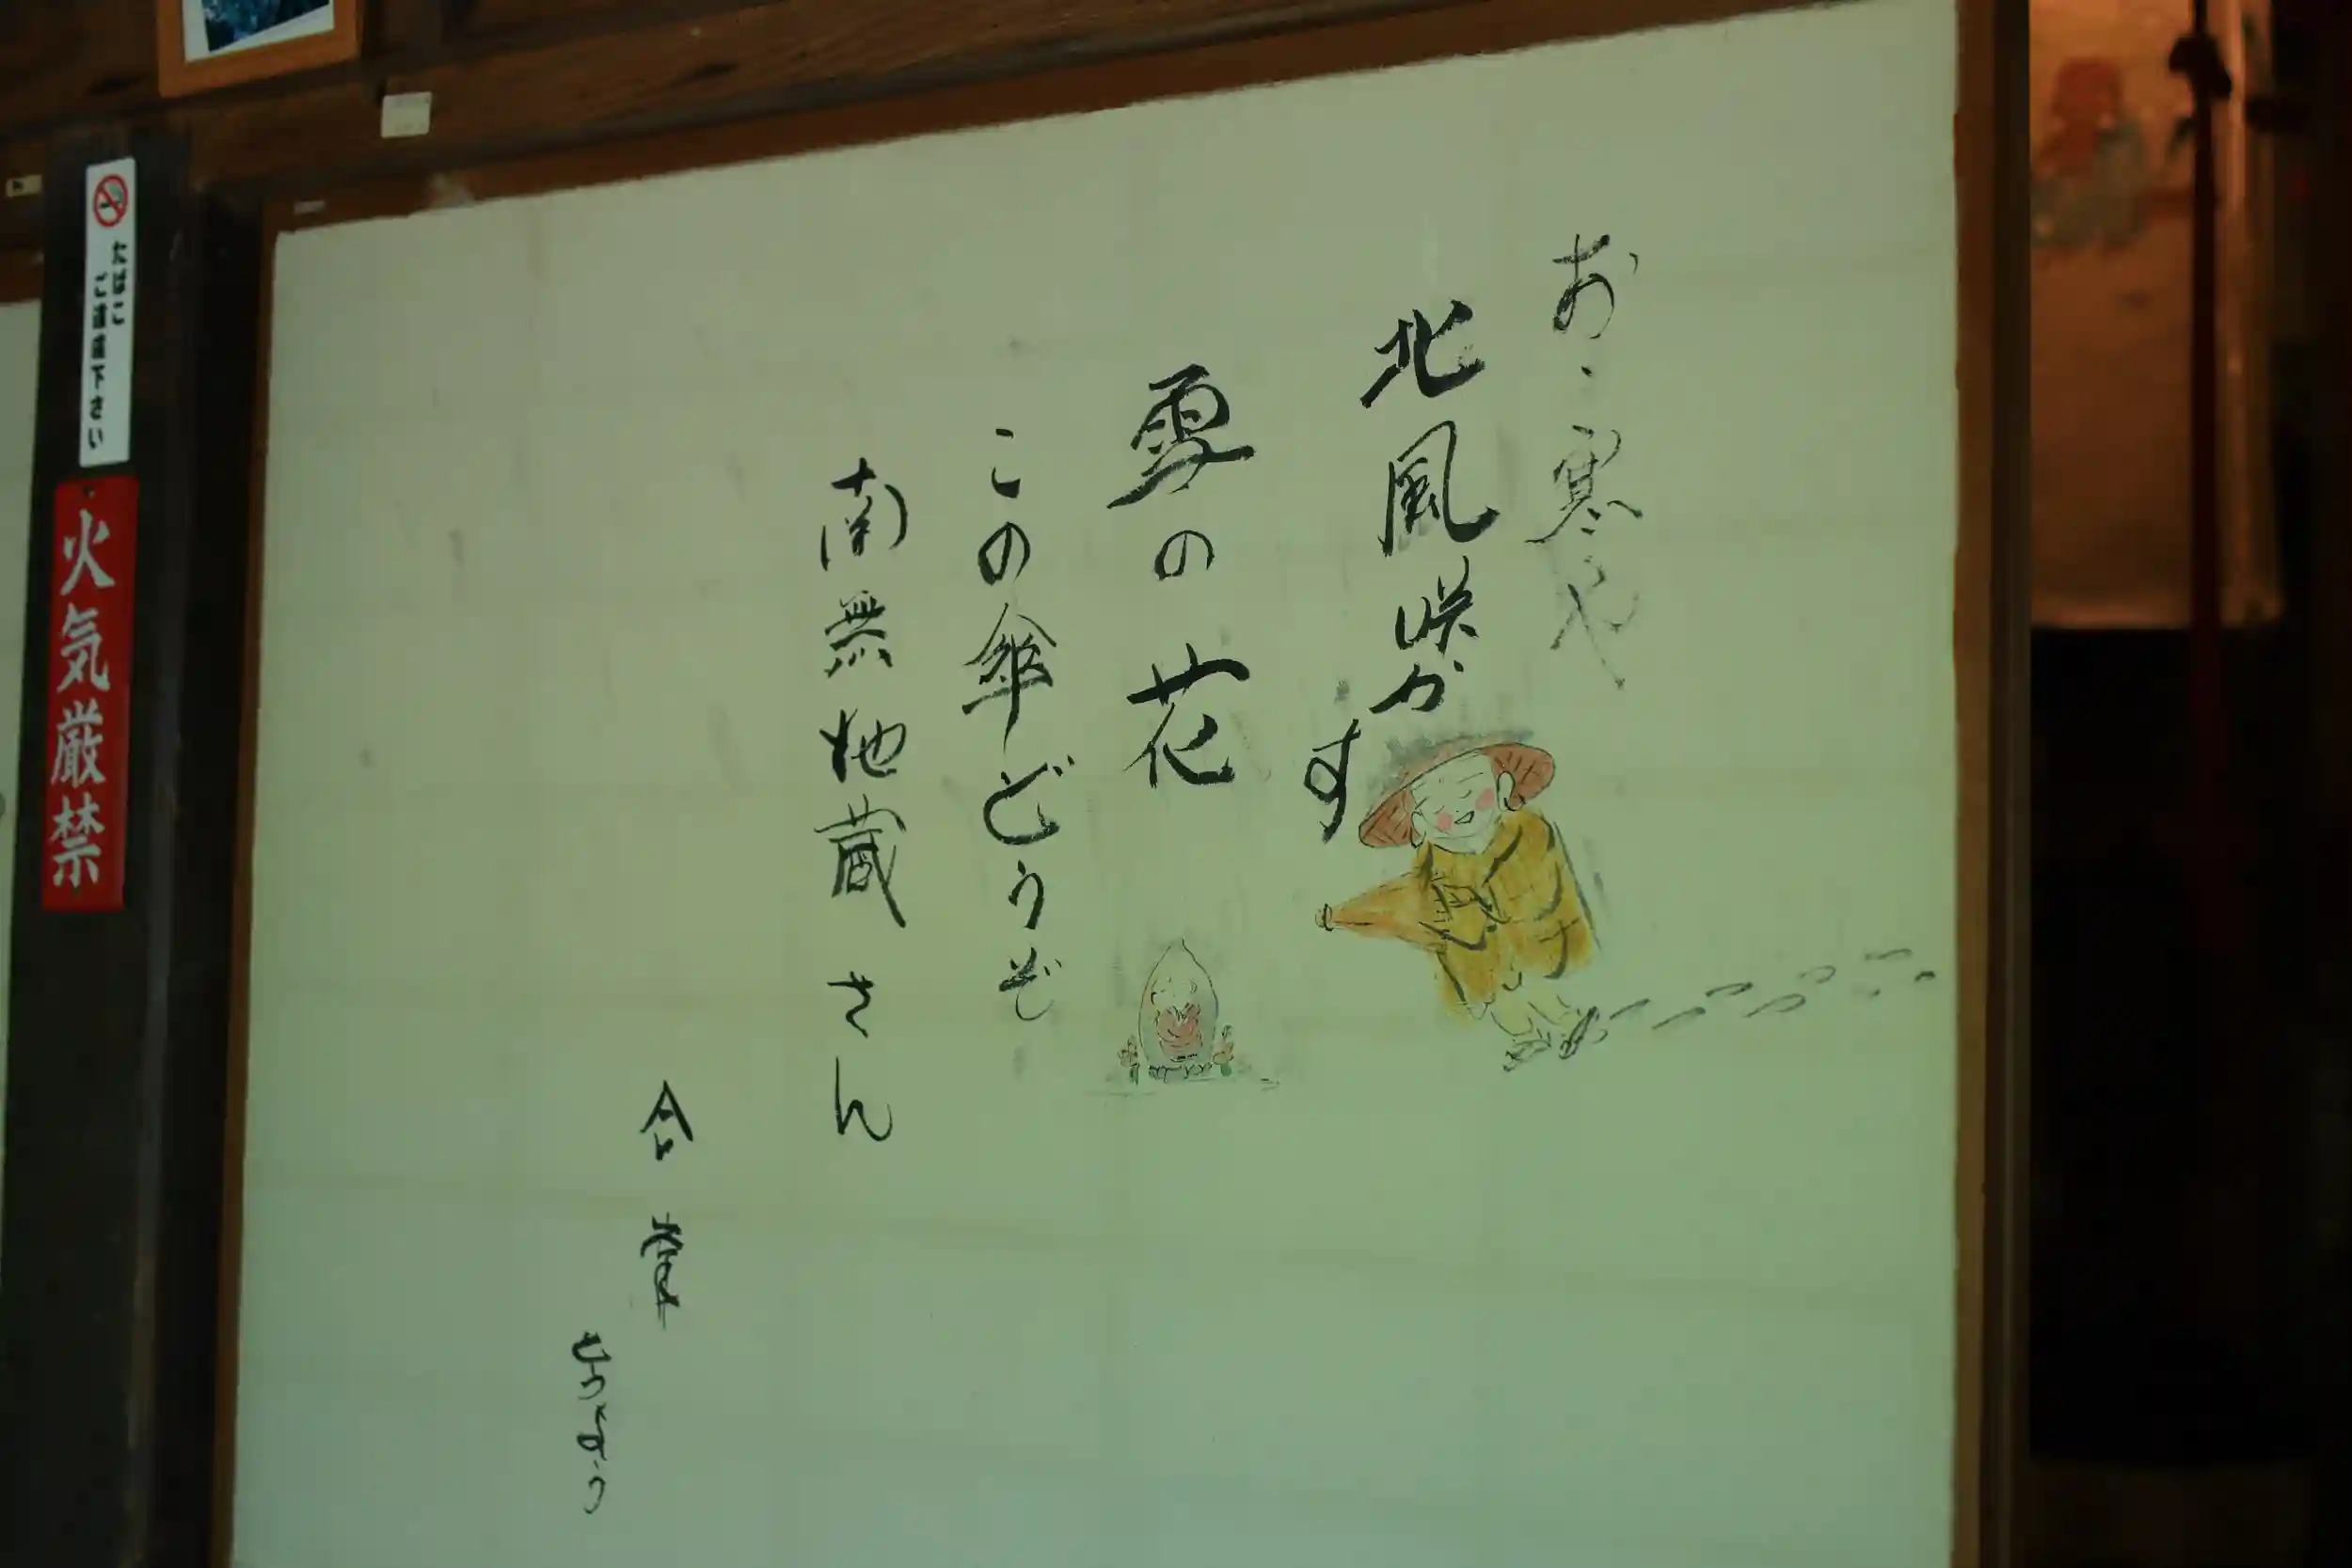 おゝ寒や
北風咲か
す
雪の花
この傘どうぞ
南無地蔵さん
合掌
たばこ
ご遠慮下さい
火気厳禁